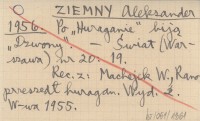 ZIEMNY Aleksander
1956. Po „Huraganie” biją
„Dzwony”. – Świat (War-
szawa) nr. 20 · 19.
Rec. z: Machejek W.: Rano
przeszedł huragan. Wyd. 2.
W-wa 1955.